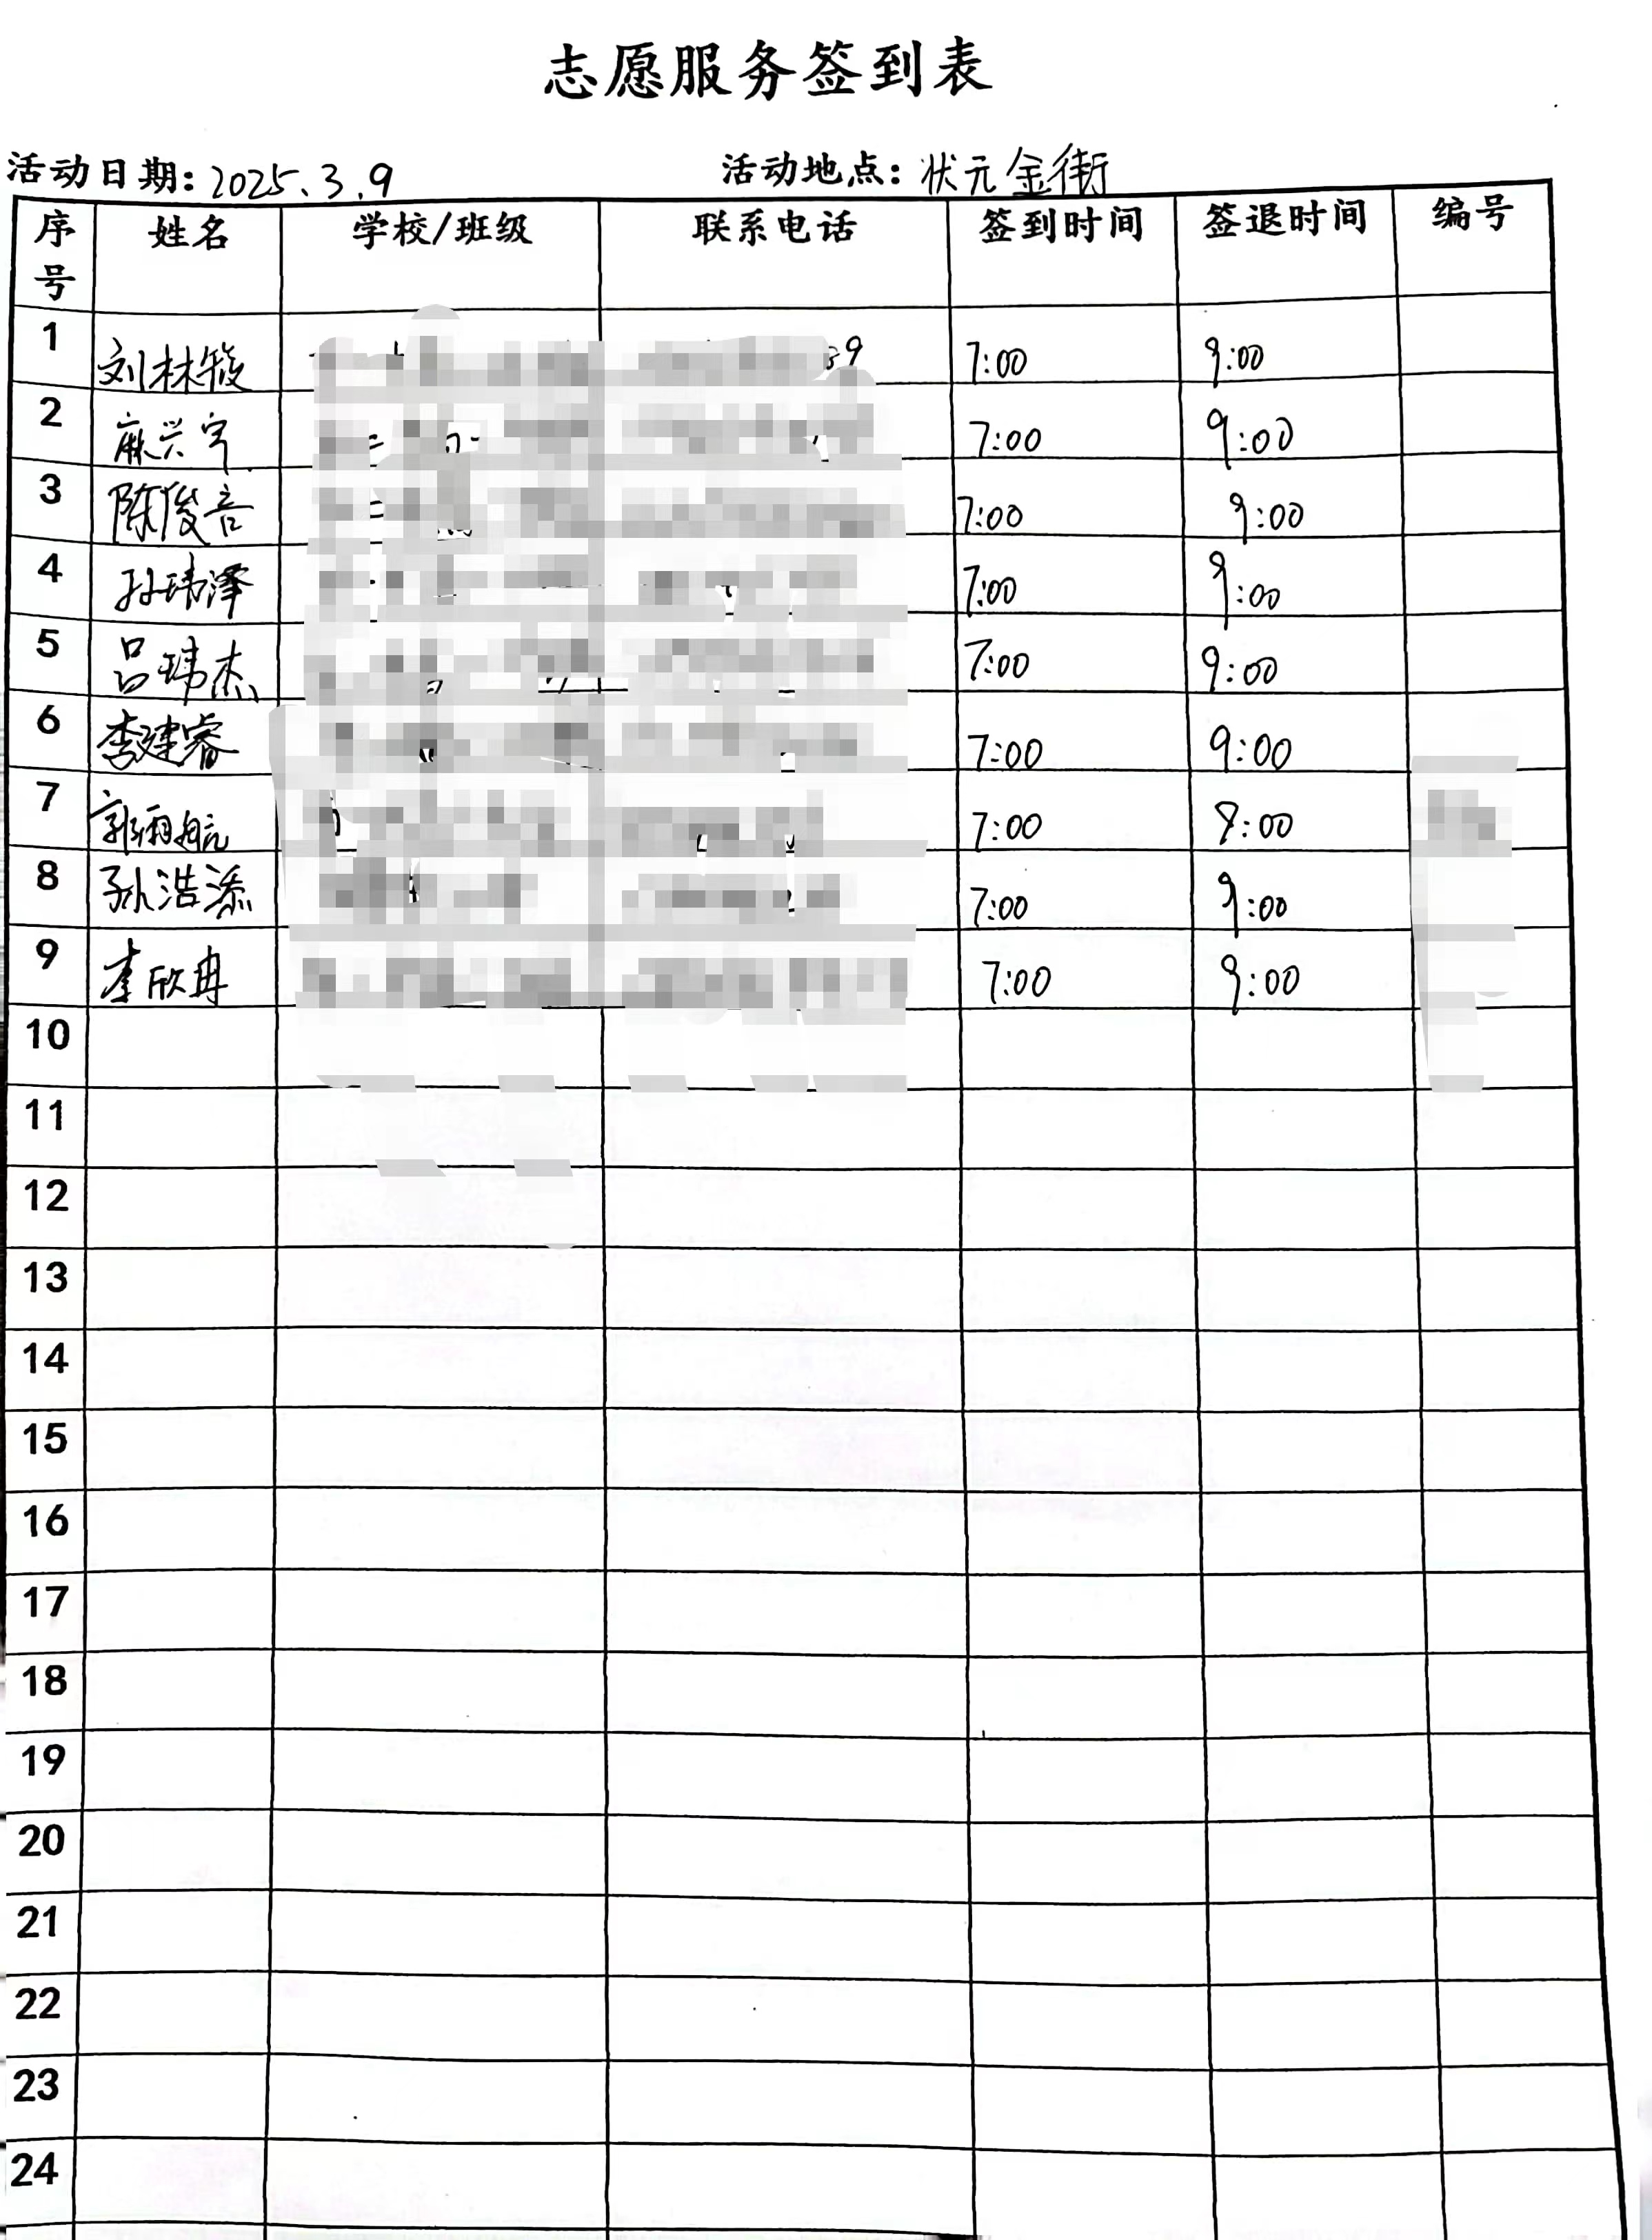 志愿服务签到表
活动日期: 2025.3.9 活动地点: 状元金街
序号 姓名 学校/班级 联系电话 签到时间 签退时间 编号
1 刘林筱 89 7:00 9:00
2 麻兴宇 7:00 9:00
3 陈俊言 7:00 9:00
4 孙玮泽 7:00 9:00
5 吕玮杰 7:00 9:00
6 李建睿 7:00 9:00
7 郭雨航 7:00 9:00
8 孙浩添 7:00 9:00
9 李欣冉 7:00 9:00
10
11
12
13
14
15
16
17
18
19
20
21
22
23
24